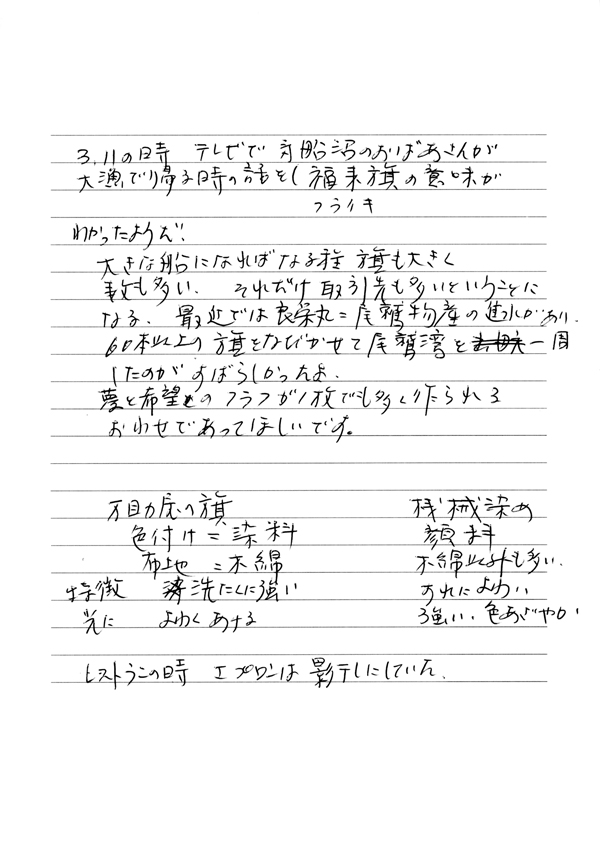 3.11の時 テレビで 気船沼のおばあさんが
大漁で帰る時の話をし 福来旗の意味が
フライキ
わかったようだ!
大きな船になればなる程 旗も大きく
数も多い、 それだけ取引先も多いということに
なる、 最近では良栄丸=尾鷲物産の進水があり、
60本以上の旗をなびかせて尾鷲湾を 一周
したのがすばらしかったよ、
夢と希望とのフラフが1枚でも多く作られる
おわせであってほしいです。
の旗 機械染め
色付け=染料 顔料
布地=木綿 木綿以外も多い、
特徴 洗たくに強い すれによわい
光に よわくあせる 強い、色あざやか
の時 エプロンは 影干しにしていた、